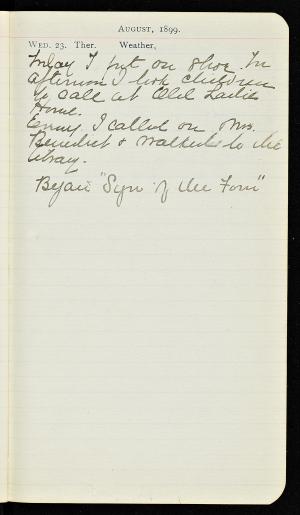 August, 1899.
Wed. 23. Ther. Weather,
Today I put on shoe. In
afternoon I took children
to call at Old Ladies
Home.
Eveng. I called on Mrs.
Benedict & walked to the
library.
Began "Sign of the Four"